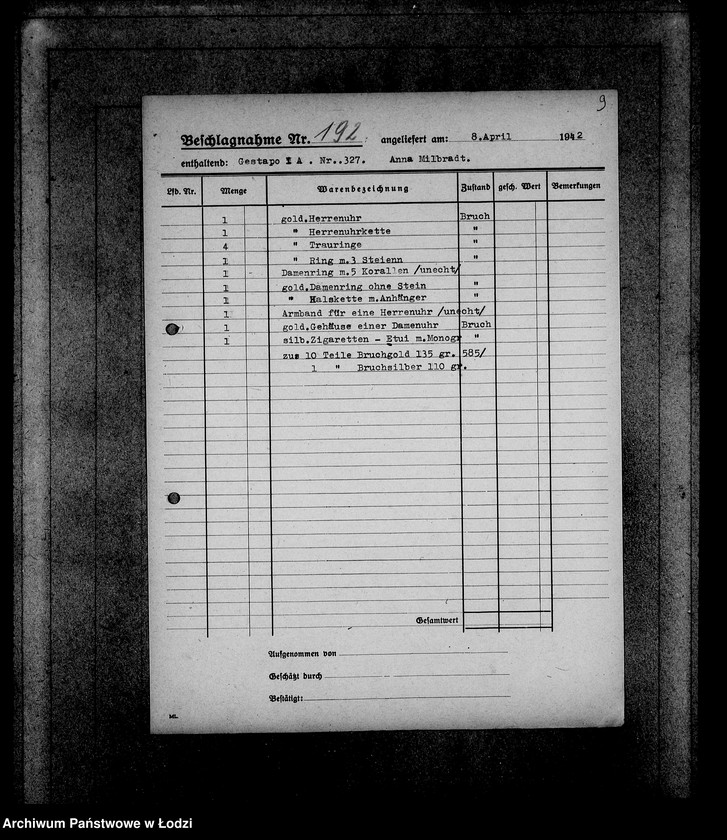 9
Beschlagnahme Nr. 192 angeliefert am: 8.April 1942
enthaltend: Gestapo I A . Nr..327. Anna Milbradt.
Lfd. Nr. Menge Warenbezeichnung Zustand gesch. Wert Bemerkungen
1 gold.Herrenuhr Bruch
1 " Herrenuhrkette "
4 " Trauringe "
1 " Ring m.3 Steienn "
1 Damenring m.5 Korallen /unecht/
1 gold.Damenring ohne Stein "
1 " Halskette m.Anhänger "
1 Armband für eine Herrenuhr /unecht/
1 gold.Gehäuse einer Damenuhr Bruch
1 silb.Zigaretten - Etui m.Monogr "
zus 10 Teile Bruchgold 135 gr. 585/
1 " Bruchsilber 110 gr.
Gesamtwert
Aufgenommen von
Geschätzt durch
Bestätigt:
Archiwum Państwowe w Łodzi